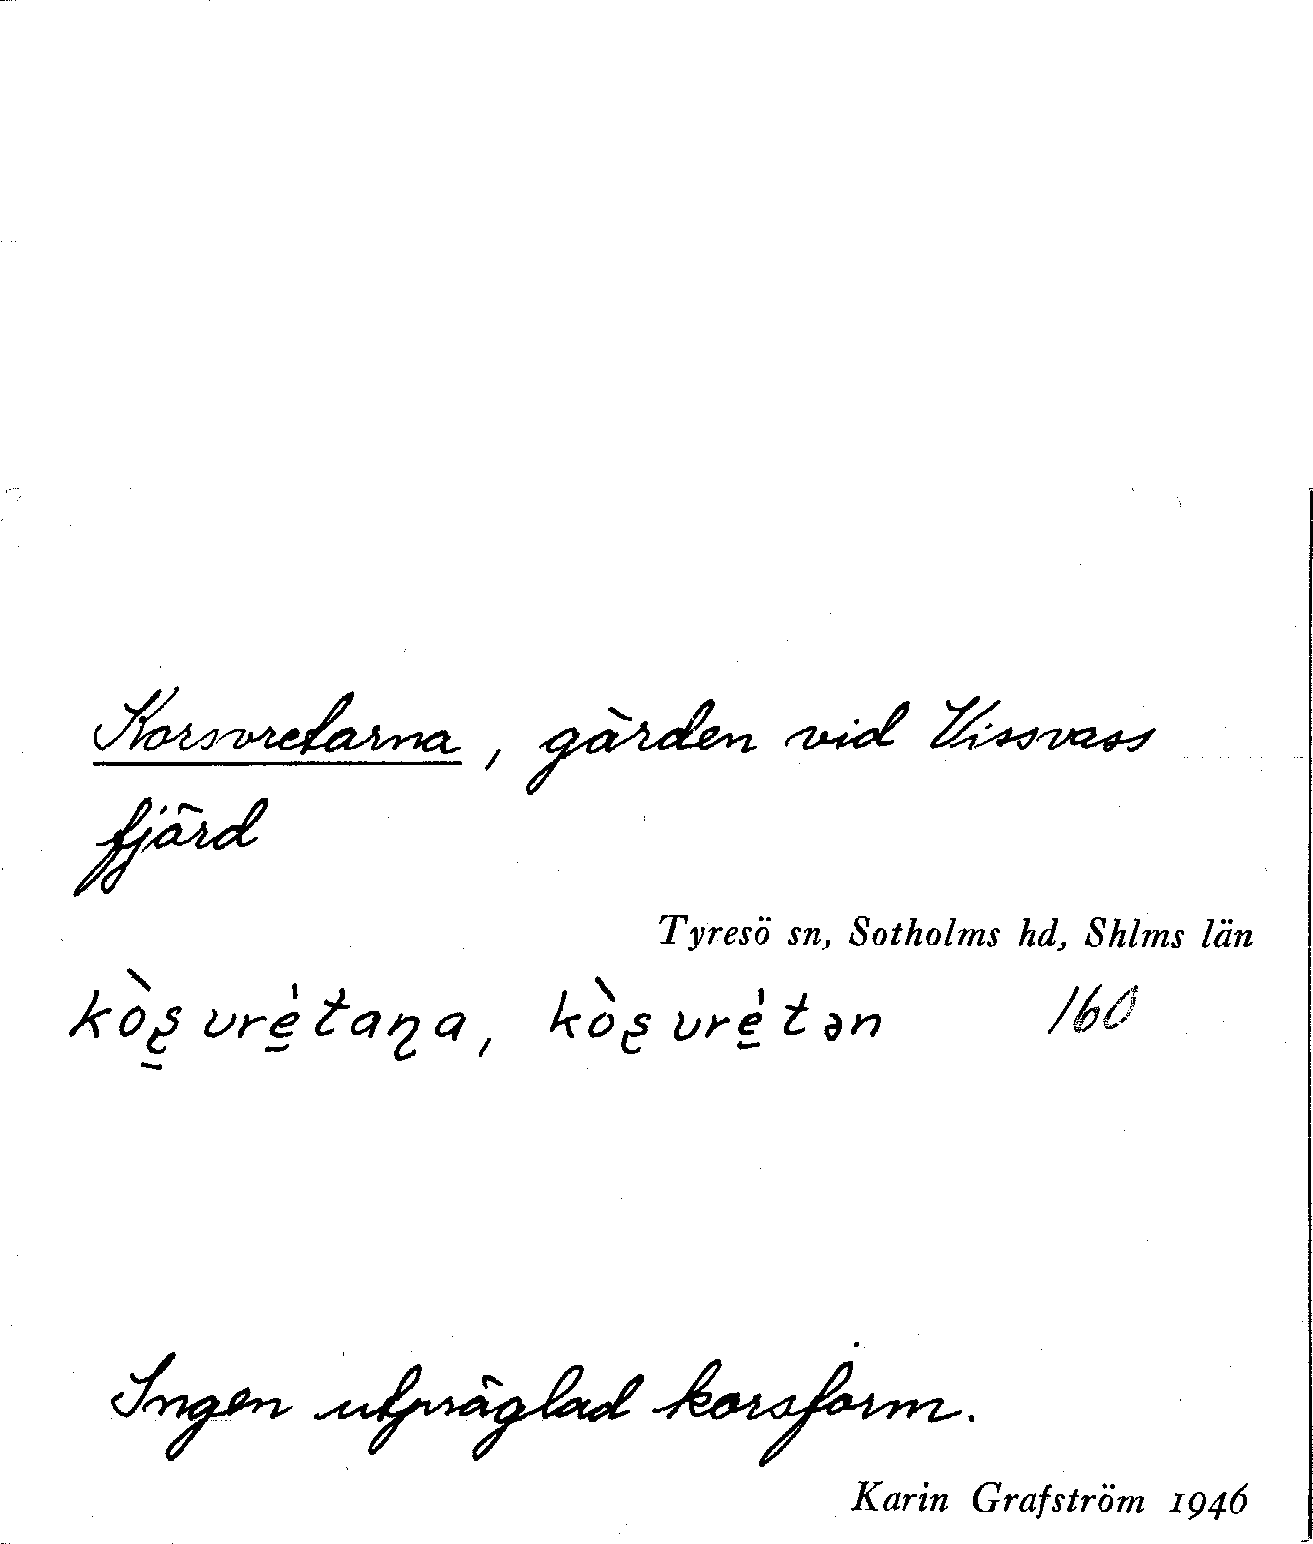 Korsvretarna, gärden vid Vissvass
fjärd
Tyresö sn, Sotholms hd, Shlms län
kò̱ʂvré̱taɳa, kòʂvré̱tən 160
Ingen utpräglad korsform.
Karin Grafström 1946